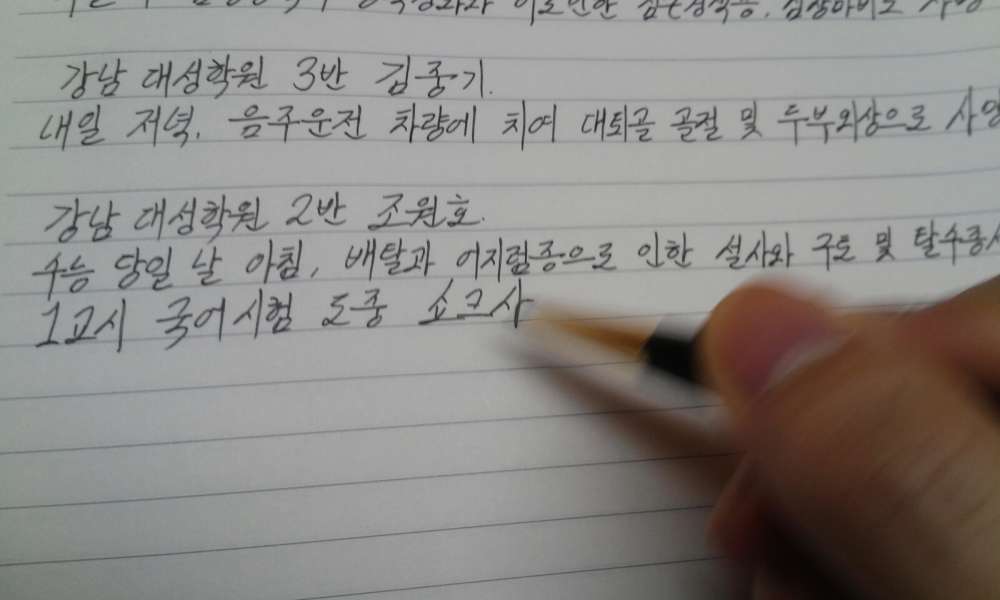 강남 대성학원 3반 김중기.
내일 저녁. 음주운전 차량에 치여 대퇴골 골절 및 두부외상으로 사망
강남 대성학원 2반 조원호.
수능 당일 날 아침, 배탈과 어지럼증으로 인한 설사와 구토 및 탈수증
1교시 국어시험 도중 쇼크사